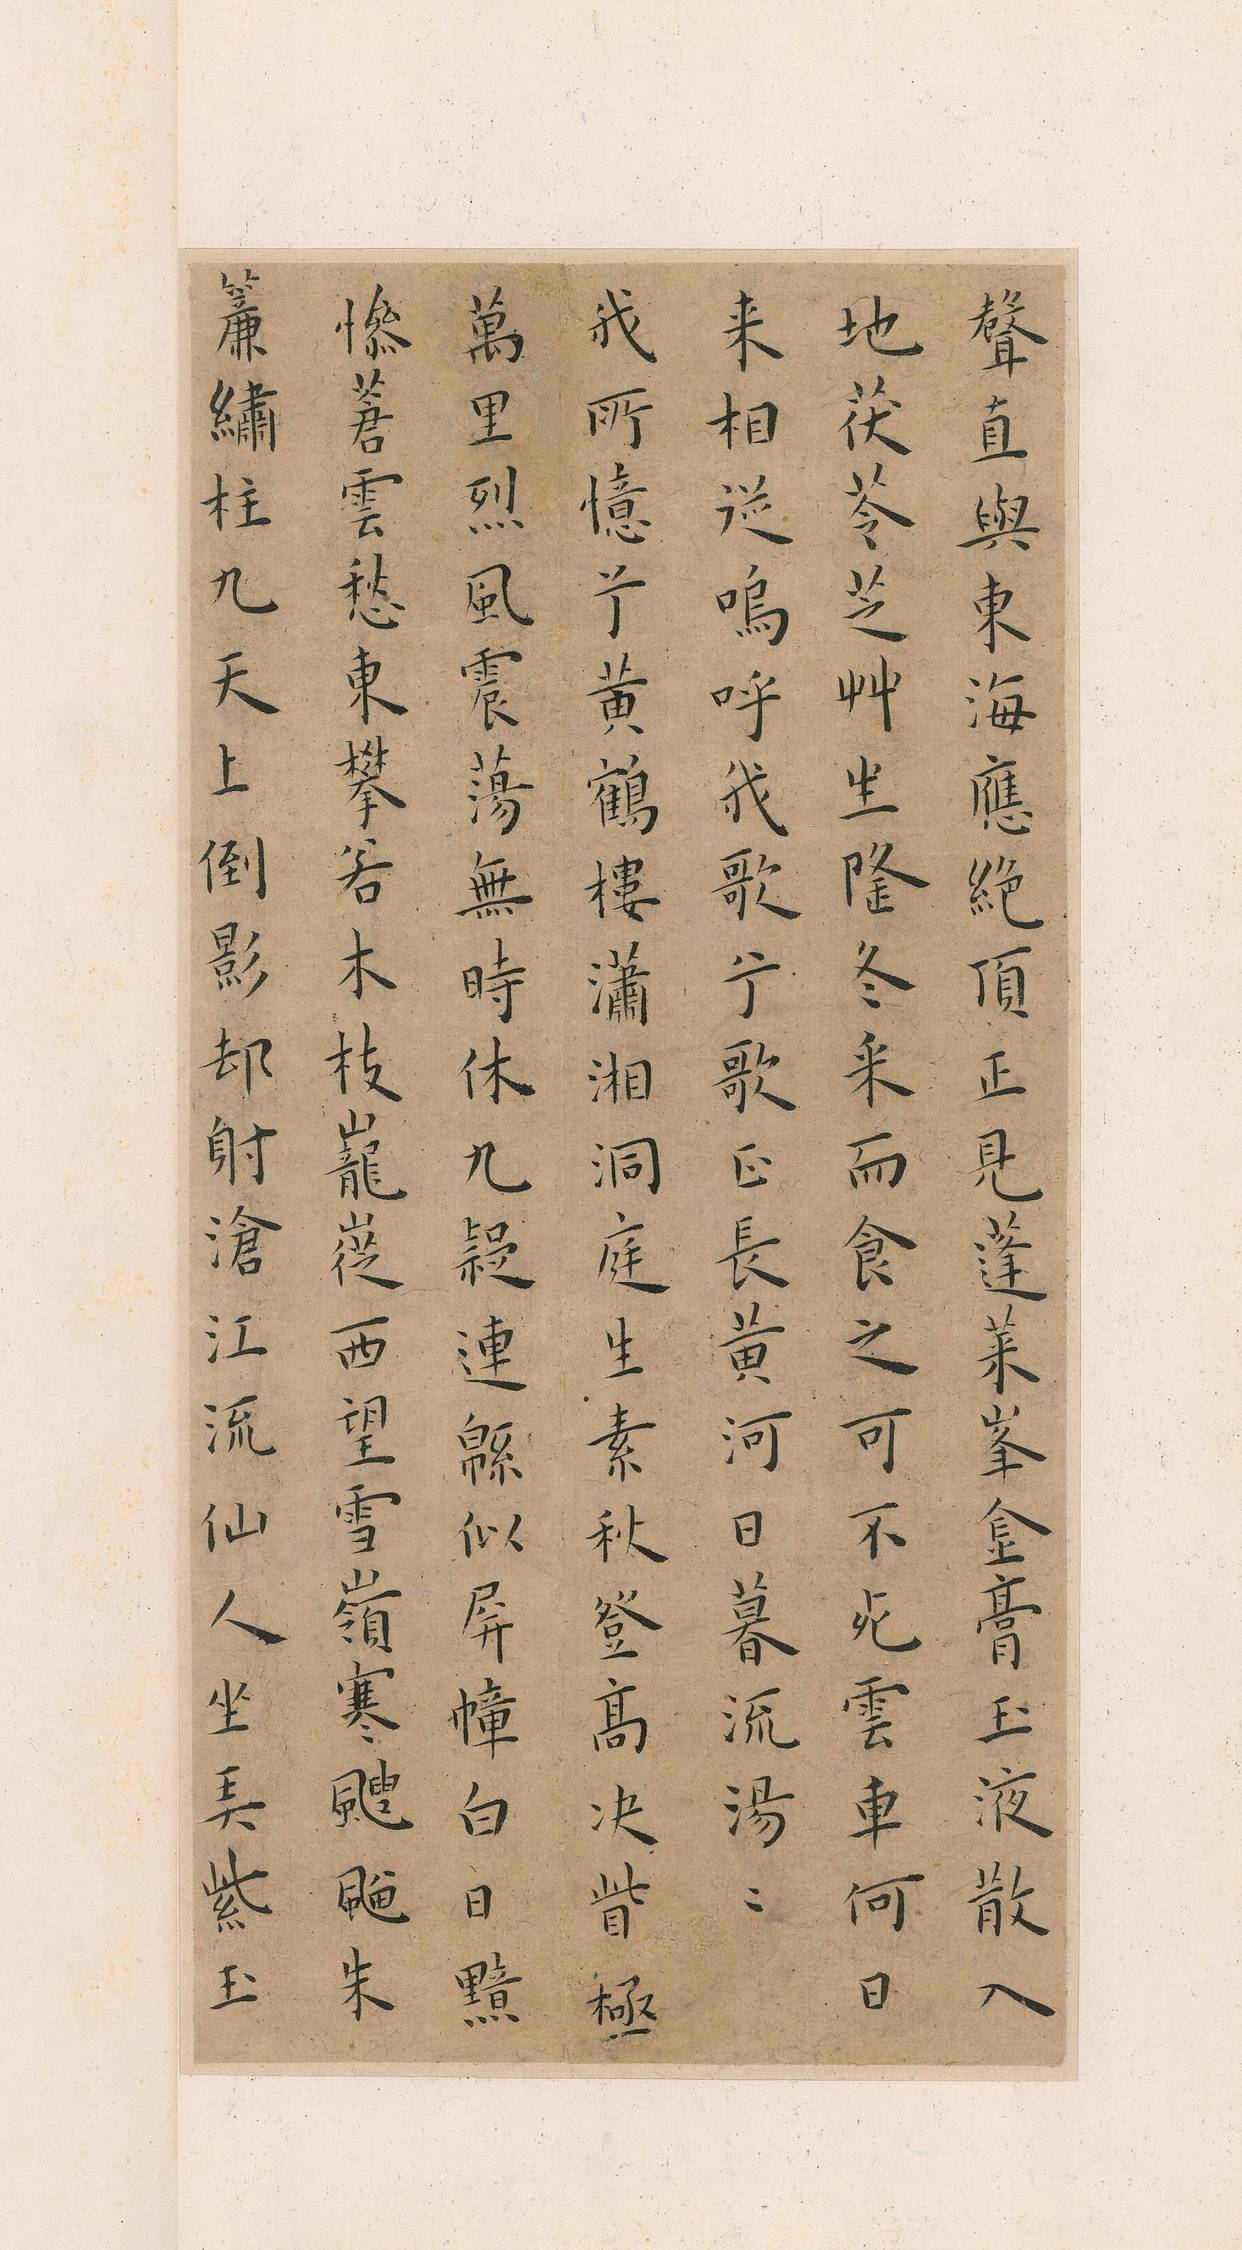 聲直與東海應絕頂正見蓬萊峯金膏玉液散入
地茯苓芝艸生隆冬采而食之可不死雲車何日
来相從嗚呼我歌兮歌正長黃河日暮流湯〻
我所憶兮黃鶴樓瀟湘洞庭生素秋登高決眥極
萬里烈風震蕩無時休九疑連緜似屏幛白日黯
慘蒼雲愁東攀若木枝巃嵸西望雪嶺寒颼颼朱
簾繡柱九天上倒影却射滄江流仙人坐吴紫玉